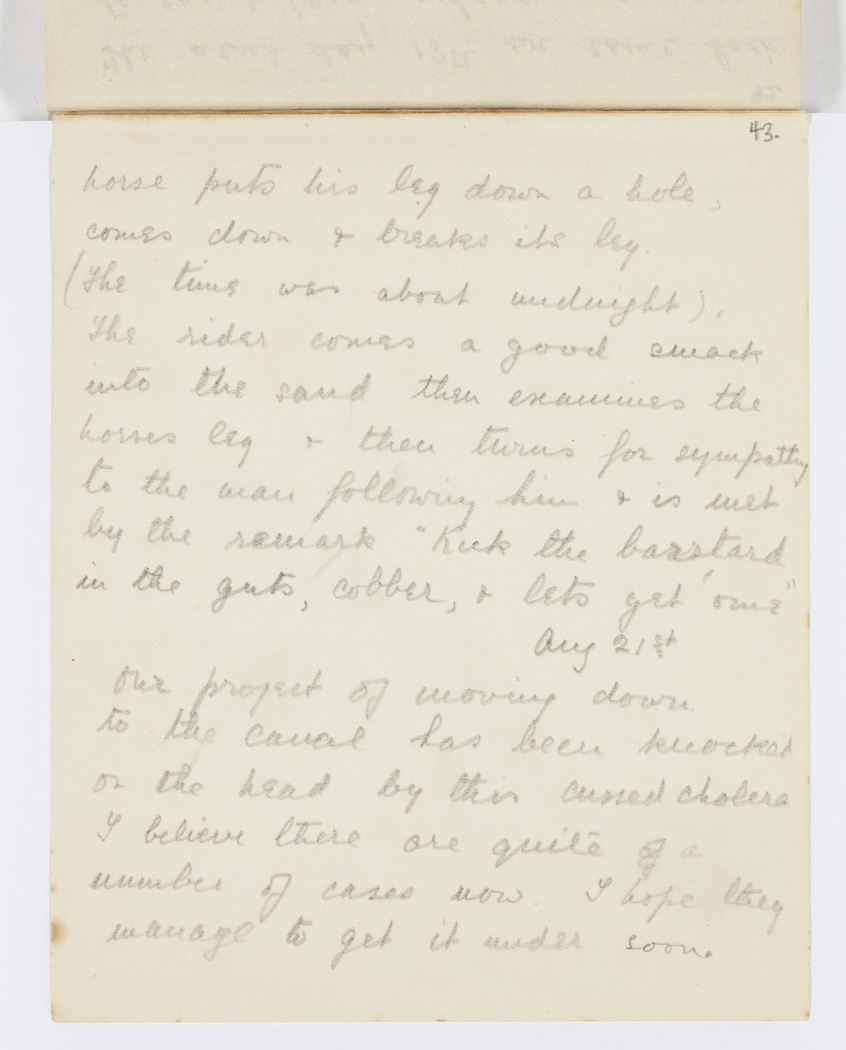 43.
horse puts his leg down a hole,
comes down & breaks its leg.
(The time was about midnight).
The rider comes a good smack
into the sand then examines the
horses leg & then turns for sympathy
to the man following him & is met
by the remark "Kick the barstard
in the guts, cobber, & lets get 'ome"
Aug 21st
Our project of moving down
to the canal has been knocked
on the head by this cussed cholera
I believe there are quite a
number of cases now. I hope they
manage to get it under soon.